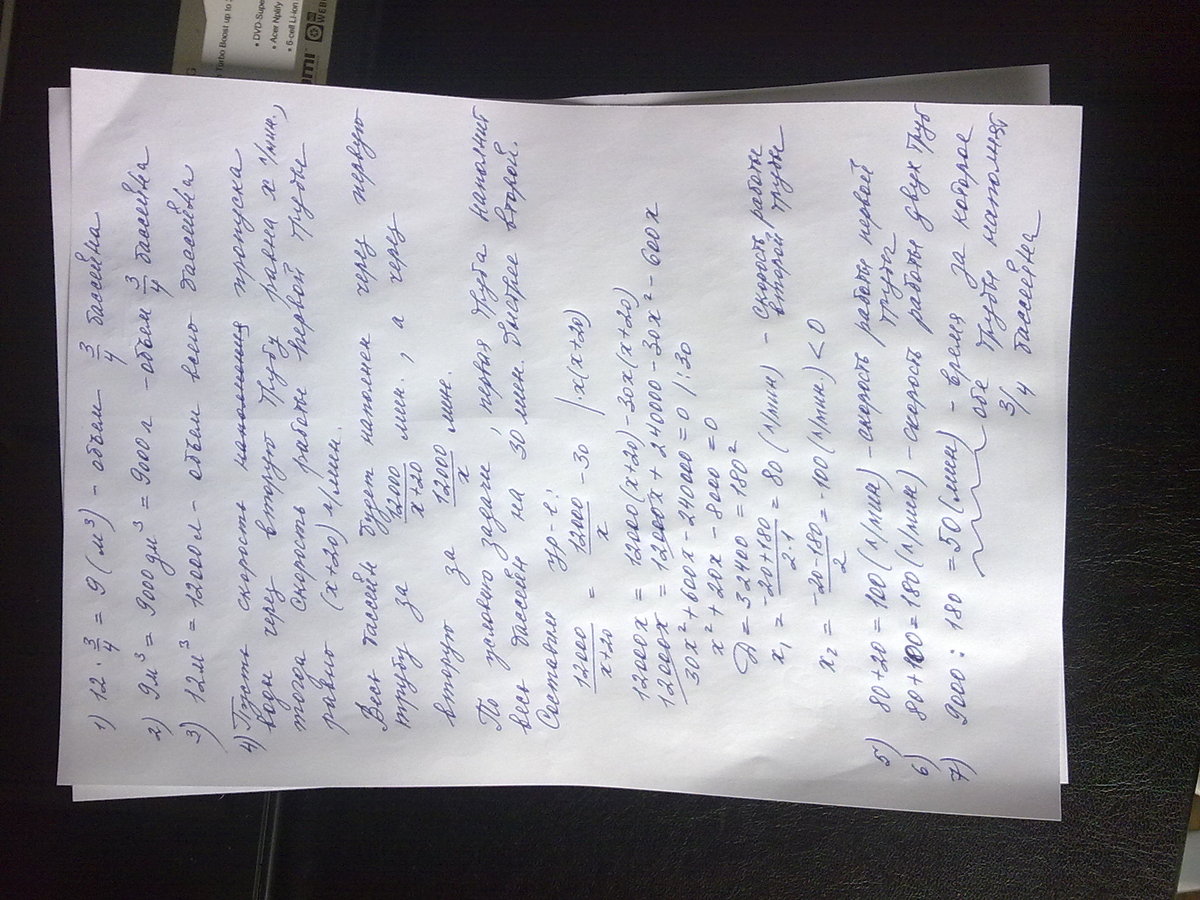 1) 12 · 3/4 = 9 (м³) – объем 3/4 бассейна
2) 9м³ = 9000 дм³ = 9000 л – объем 3/4 бассейна
3) 12м³ = 12000л – объем всего бассейна
4) Пусть скорость пропуска
воды через вторую трубу равна x л/мин.,
тогда скорость работы первой трубы
равна (x+20) л/мин.
Весь бассейн будет наполнен через первую
трубу за 12000/x+20 мин., а через
вторую за 12000/x мин.
По условию задачи, первая труба наполнит
весь бассейн на 30 мин. быстрее второй.
Составим ур-е:
12000/x+20 = 12000/x - 30 /·x(x+20)
12000x = 12000(x+20) - 30x(x+20)
12000x = 12000x + 240000 - 30x² - 600x
30x² + 600x - 240000 = 0 /:30
x² + 20x - 8000 = 0
D = 32400 = 180²
x₁ = -20+180/2·1 = 80 (л/мин) – скорость работы
второй трубы
x₂ = -20-180/2 = -100 (л/мин.) < 0
5) 80+20 = 100 (л/мин) – скорость работы первой
трубы
6) 80+100 = 180 (л/мин) – скорость работы двух труб
7) 9000 : 180 = 50 (мин) – время за которое
обе трубы наполнят
3/4 бассейна
Turbo Boost up to
• DVD-Supe
• Acer Nplify
• 6-cell Li-ion
WEB